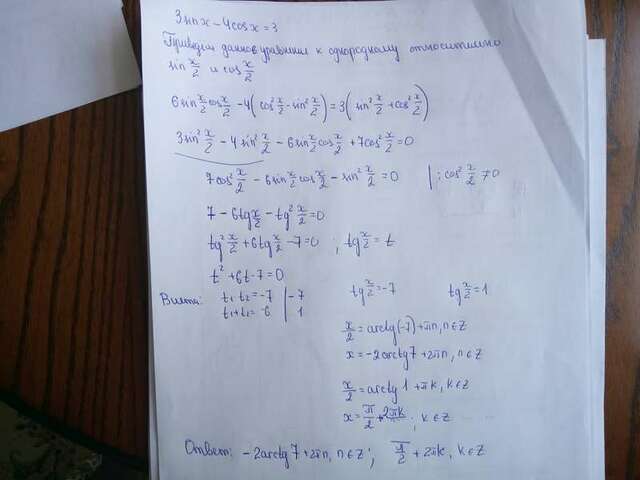 3sinx - 4cosx = 3
Приведем данное уравнение к однородному относительно
sin x/2 и cos x/2
6sin x/2 cos x/2 - 4(cos² x/2 - sin² x/2) = 3(sin² x/2 + cos² x/2)
3sin² x/2 - 4sin² x/2 - 6sin x/2 cos x/2 + 7cos² x/2 = 0
7cos² x/2 - 6sin x/2 cos x/2 - sin² x/2 = 0 | : cos² x/2 ≠ 0
7 - 6tg x/2 - tg² x/2 = 0
tg² x/2 + 6tg x/2 - 7 = 0 ; tg x/2 = t
t² + 6t - 7 = 0
Виета: t₁ t₂ = -7 | -7 tg x/2 = -7 tg x/2 = 1
t₁ + t₂ = -6 | 1
x/2 = arctg(-7) + πn, n∈Z
x = -2arctg7 + 2πn, n∈Z
x/2 = arctg 1 + πk, k∈Z
x = π/2 + 2πk ; k∈Z
Ответ: -2arctg7 + 2πn, n∈Z ; π/2 + 2πk, k∈Z